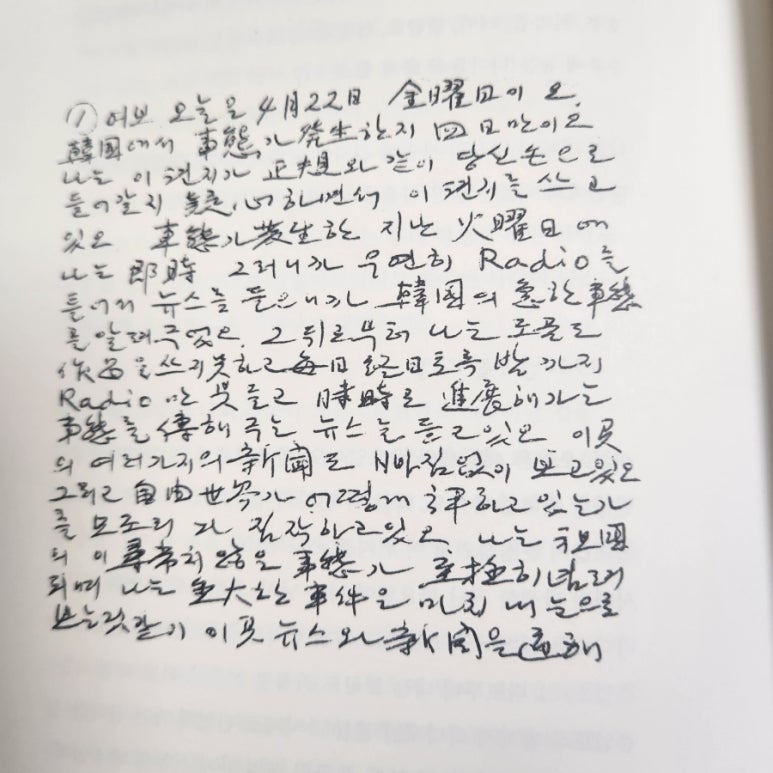 ① 여보 오늘은 4月22日 金曜日이오.
韓國에서 事態가 発生한지 四日만이오
나는 이 편지가 正規와 같이 당신손으로
들어갈지 疑心하면서 이 편지를 쓰고
있오 事態가 發生한 지난 火曜日에
나는 即時 그러니까 우연히 Radio를
들어서 뉴스를 들으니까 韓国의 事態
를 알려주었오. 그 뒤로부터 나는
作品을 쓰지못하고 每日 終日토록 밤까지
Radio만 붓들고 時時로 進展해가는
事態를 傳해 주는 뉴스를 듣고있오 이곳
의 여러가지의 新聞도 빠짐없이 보고있오
그리고 自由世界가 어떻게 評하고 있는가
를 모조리 다 짐작하고있오 나는
의 이 尋常치 않은 事態가 至極히 염려
되며 나는 重大한 事件을 마치 내 눈으로
보는것같이 이곳 뉴스와 新聞을 通해